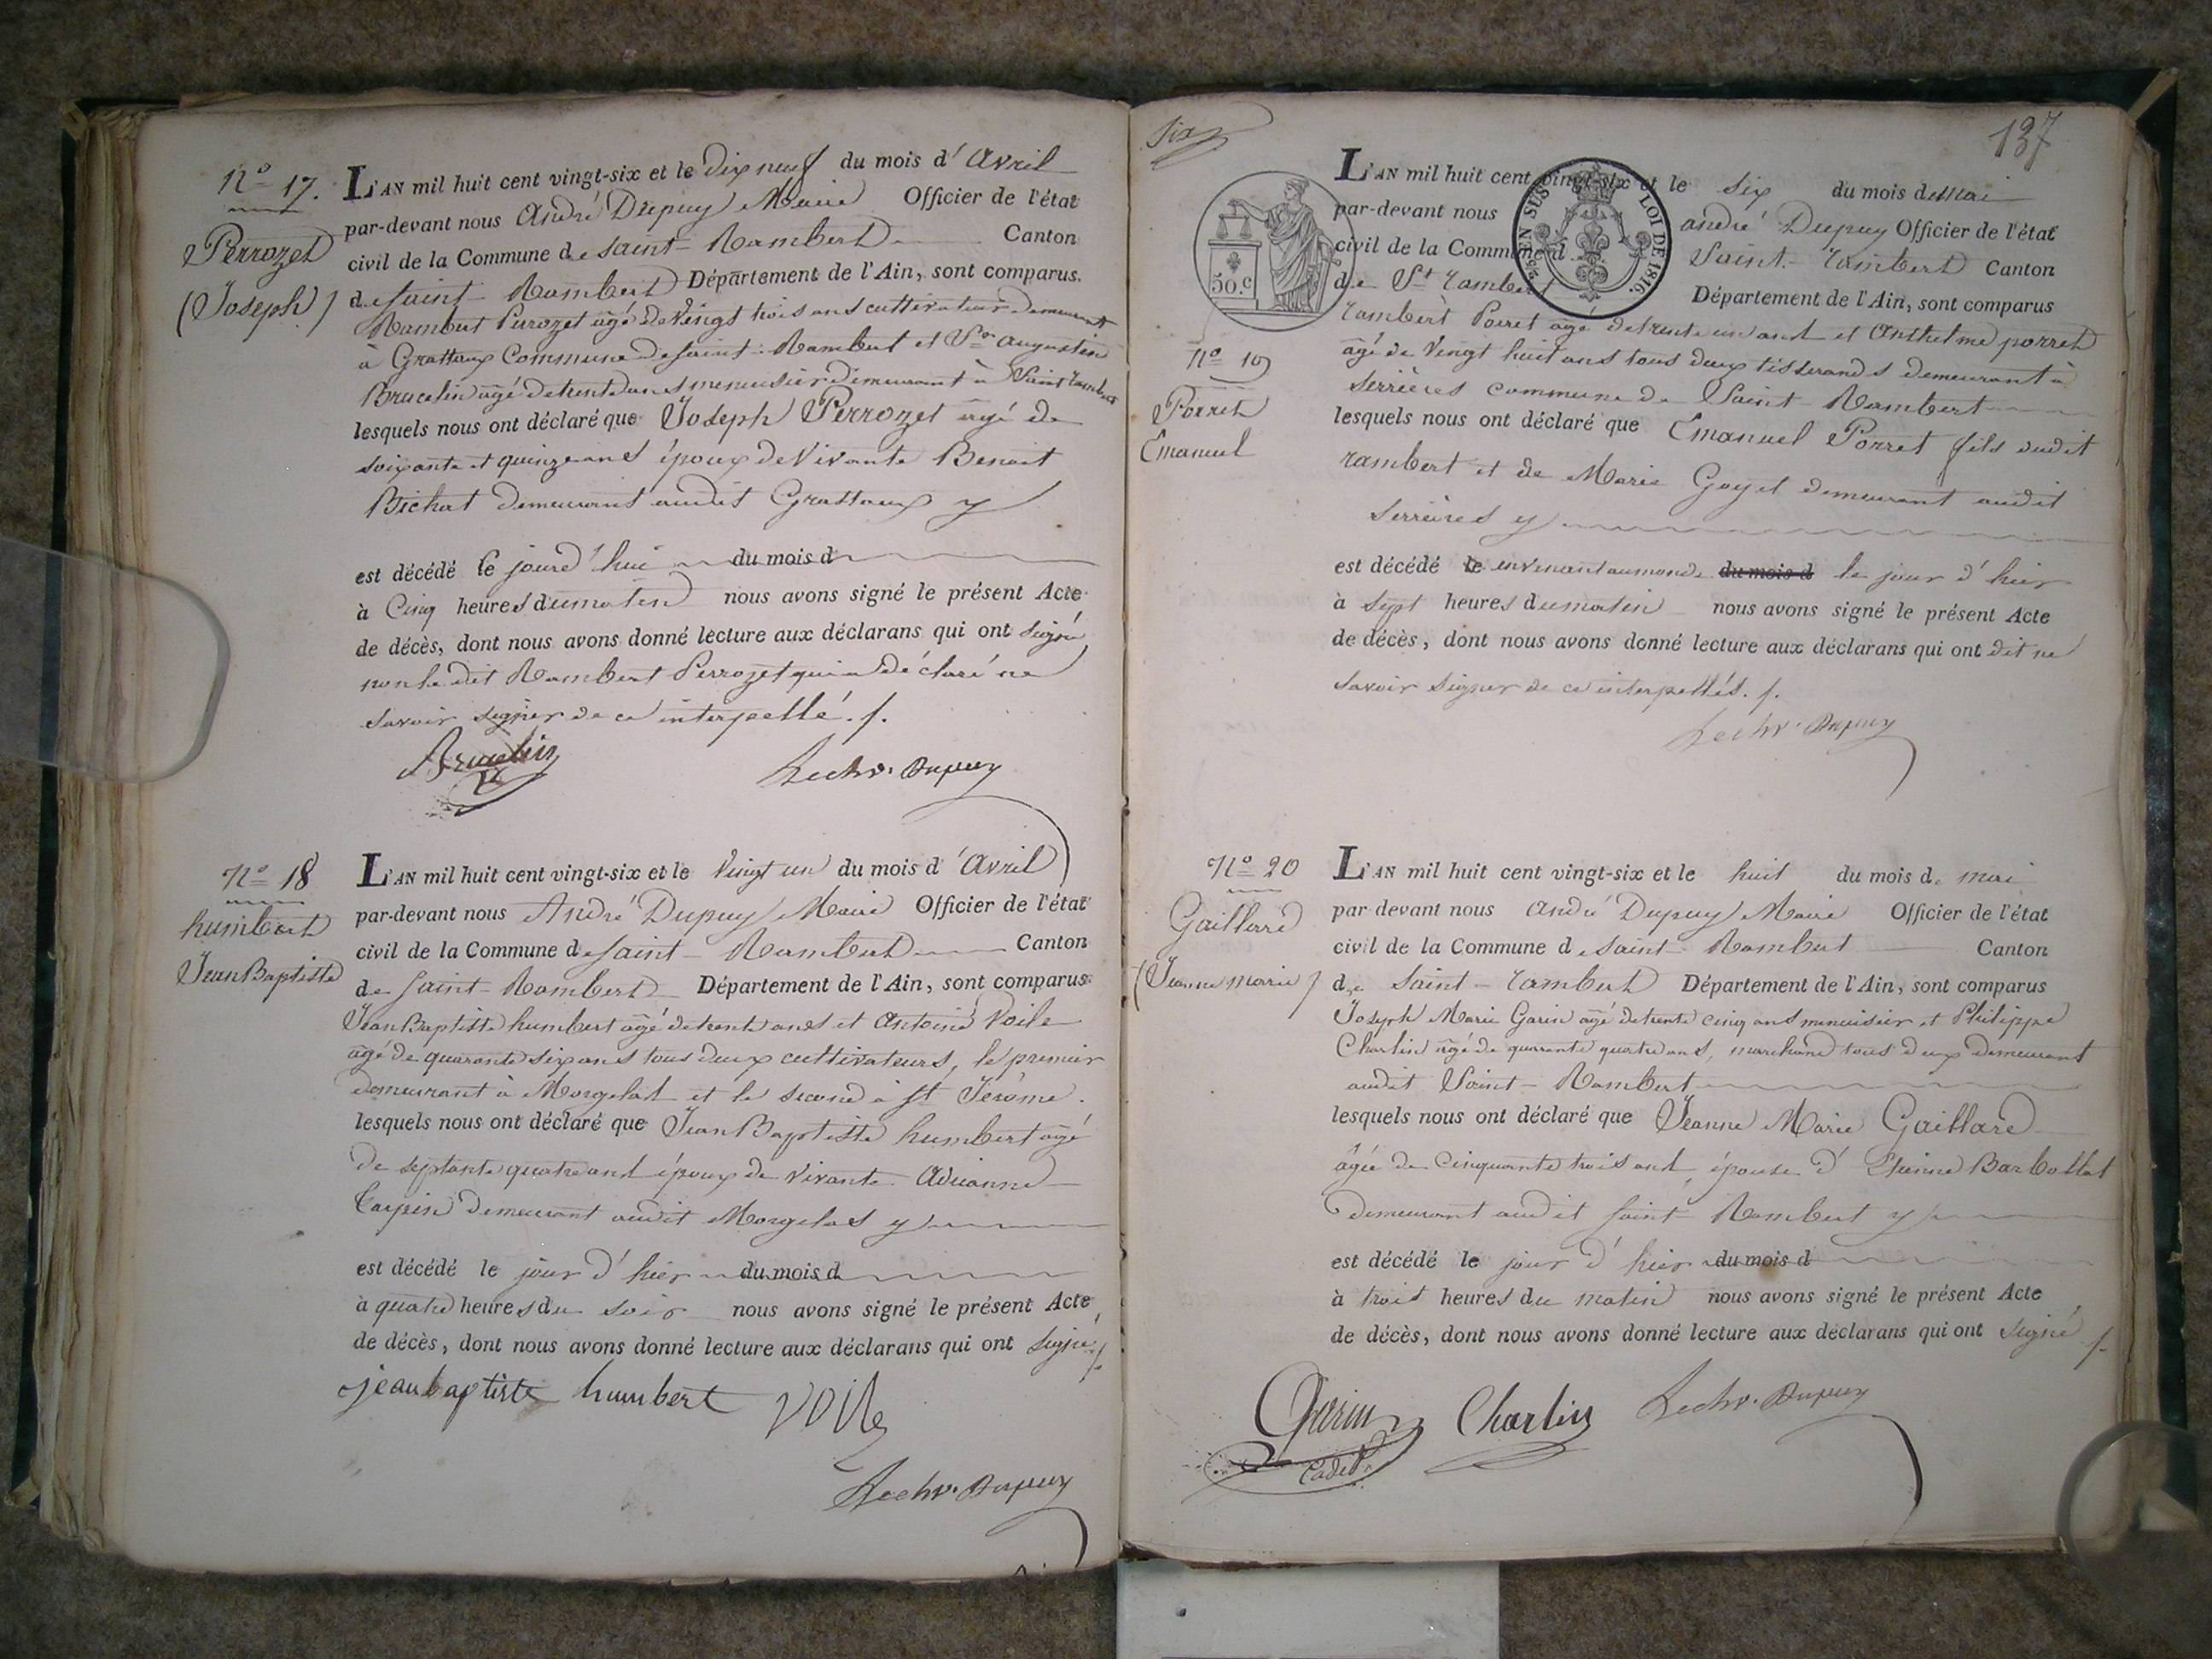 N° 17.
Perrozet
(Joseph)
L'AN mil huit cent vingt-six et le dix neuf du mois d'Avril
par-devant nous André Dupuy Maire Officier de l'état
civil de la Commune de Saint-Rambert Canton
de Saint-Rambert Département de l'Ain, sont comparus.
Rambert Perrozet âgé de Vingt trois ans cultivateur demeurant
à Grattoux Commune de Saint-Rambert et Augustin
Brucelin âgé de trente ans menuisier demeurant à Saint rambert
lesquels nous ont déclaré que Joseph Perrozet âgé de
soixante et quinze ans époux de Vivante Benoit
Bichat demeurant audit Grattoux
est décédé le jourd'hui du mois d
à Cinq heures du matin nous avons signé le présent Acte
de décès, dont nous avons donné lecture aux déclarans qui ont signé
non le dit Rambert Perrozet qui a déclaré ne
savoir signer de ce interpellé ./.
Brucelin
Dupuy
N° 18
humbert
Jean Baptiste
L'AN mil huit cent vingt-six et le Vingt un du mois d'Avril
par-devant nous André Dupuy Maire Officier de l'état
civil de la Commune de Saint-Rambert Canton
de Saint-Rambert Département de l'Ain, sont comparus
Jean Baptiste humbert âgé de trente ans et Antoine Voile
âgé de quarante six ans tous deux cultivateurs, le premier
demeurant à Morgelas et le second à St Jérôme.
lesquels nous ont déclaré que Jean Baptiste humbert âgé
de septante quatre ans époux de Vivante
Carpin demeurant audit Morgelas
est décédé le jour d'hier du mois d
à quatre heures du soir nous avons signé le présent Acte
de décès, dont nous avons donné lecture aux déclarans qui ont signé ./.
jean baptiste humbert Voile
Dupuy
Six
137
50.c
EN SUS LOI DE 1816.
N° 19
Porret
Emanuel
L'AN mil huit cent vingt-six et le six du mois de mai
par-devant nous andré Dupuy Officier de l'état
civil de la Commune d Saint-rambert Canton
de St rambert Département de l'Ain, sont comparus
rambert Porret âgé de trente un ans et Anthelme porret
âgé de Vingt huit ans tous deux tisserands demeurant à
Serrières commune de Saint-Rambert
lesquels nous ont déclaré que Emanuel Porret fils dudit
rambert et de Marie Goyet demeurant audit
Serrières
est décédé le en venant au monde du mois d le jour d'hier
à sept heures du matin nous avons signé le présent Acte
de décès, dont nous avons donné lecture aux déclarans qui ont dit ne
savoir signer de ce interpellés ./.
Dupuy
N° 20
Gaillard
(Jeanne marie)
L'AN mil huit cent vingt-six et le huit du mois de mai
par devant nous André Dupuy Maire Officier de l'état
civil de la Commune de Saint-Rambert Canton
de Saint-rambert Département de l'Ain, sont comparus
Joseph Marie Garin âgé de trente cinq ans menuisier et Philippe
Charlin âgé de quarante quatre ans, marchand tous deux demeurant
audit Saint-Rambert
lesquels nous ont déclaré que Jeanne Marie Gaillard
âgée de Cinquante trois ans, épouse d'Etienne Barbollat
demeurant audit Saint-Rambert
est décédé le jour d'hier du mois d
à trois heures du matin nous avons signé le présent Acte
de décès, dont nous avons donné lecture aux déclarans qui ont signé ./.
Garin Charlin Dupuy
Cadet